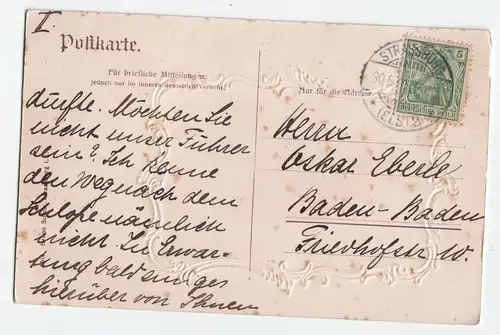 I.
Postkarte.
Für briefliche Mitteilungen:
jedoch nur im inneren deutschen Verkehr.
dürfte. Möchten Sie
nicht unser Führer
sein? Ich kenne
den Weg nach dem
Schlosse nämlich
nicht. In Erwar-
tung baldeiniges
hierüber von Ihnen
Nur für die Adresse.
STRASSBURG
5
DEUTSCHES REICH
(ELS)
Herrn
Oskar Eberle
Baden-Baden
Friedhofstr. 10.